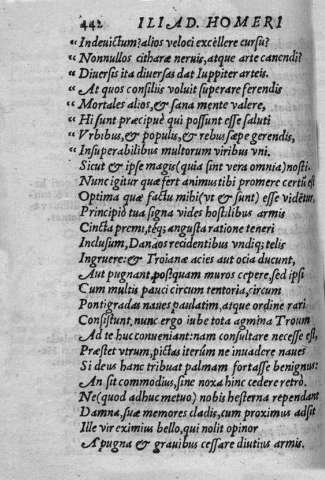 442 ILIAD. HOMERI
“ Indeuictum? alios veloci excellere cursu?
“ Nonnullos citharæ neruis, atque arte canendi?
“ Diuersis ita diuersas dat Iuppiter arteis.
“ At quos consiliis voluit superare ferendis
“ Mortales alios, & sana mente valere,
“ Hi sunt præcipuè qui possunt esse saluti
“ Vrbibus, & populis, & rebus sæpe gerendis,
“ Insuperabilibus multorum viribus vni.
Sicut & ipse magis (quia sint vera omnia) nosti.
Nunc igitur quæ fert animus tibi promere certũ est
Optima quæ factu mihi (vt & sunt) esse vidẽtur.
Principiò tua signa vides hostilibus armis
Cincta premi, téq; angusta ratione teneri
Inclusum, Danaos recidentibus vndiq; telis
Ingruere: & Troianæ acies aut ocia ducunt,
Aut pugnant, postquam muros cepere, sed ipsi
Cum multis pauci circum tentoria, circum
Pontigradas naues paulatim, atque ordine rari
Consistunt, nunc ergo iube tota agmina Troum
Ad te huc conueniant: nam consultare necesse est,
Præstet vtrum, pictas iterũm ne inuadere naues
Si deus hanc tribuat palmam fortasse benignus:
An sit commodius, sine noxa hinc cedere retrò.
Ne (quod adhuc metuo) nobis hesterna rependant
Damna, suæ memores cladis, cum proximus adsit
Ille vir eximius bello, qui nolit opinor
A pugna & grauibus cessare diutius armis.